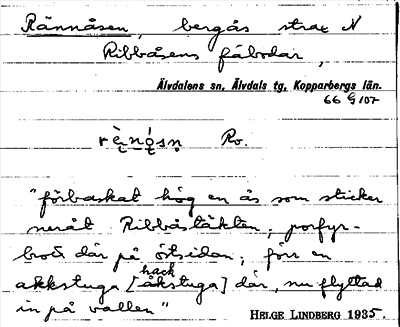 Rännåsen, bergås strax N
Ribbåsens fäbodar,
Älvdalens sn, Älvdals tg, Kopparbergs län.
66 G 107
Ro.
"förbaskat hög en ås som sticker
neråt Ribbåstäkten, porfyr-
brott där på östsidan, förr en
hack
akkstuga [åkstuga] där, nu flyttad
in på vallen"
HELGE LINDBERG 1935.